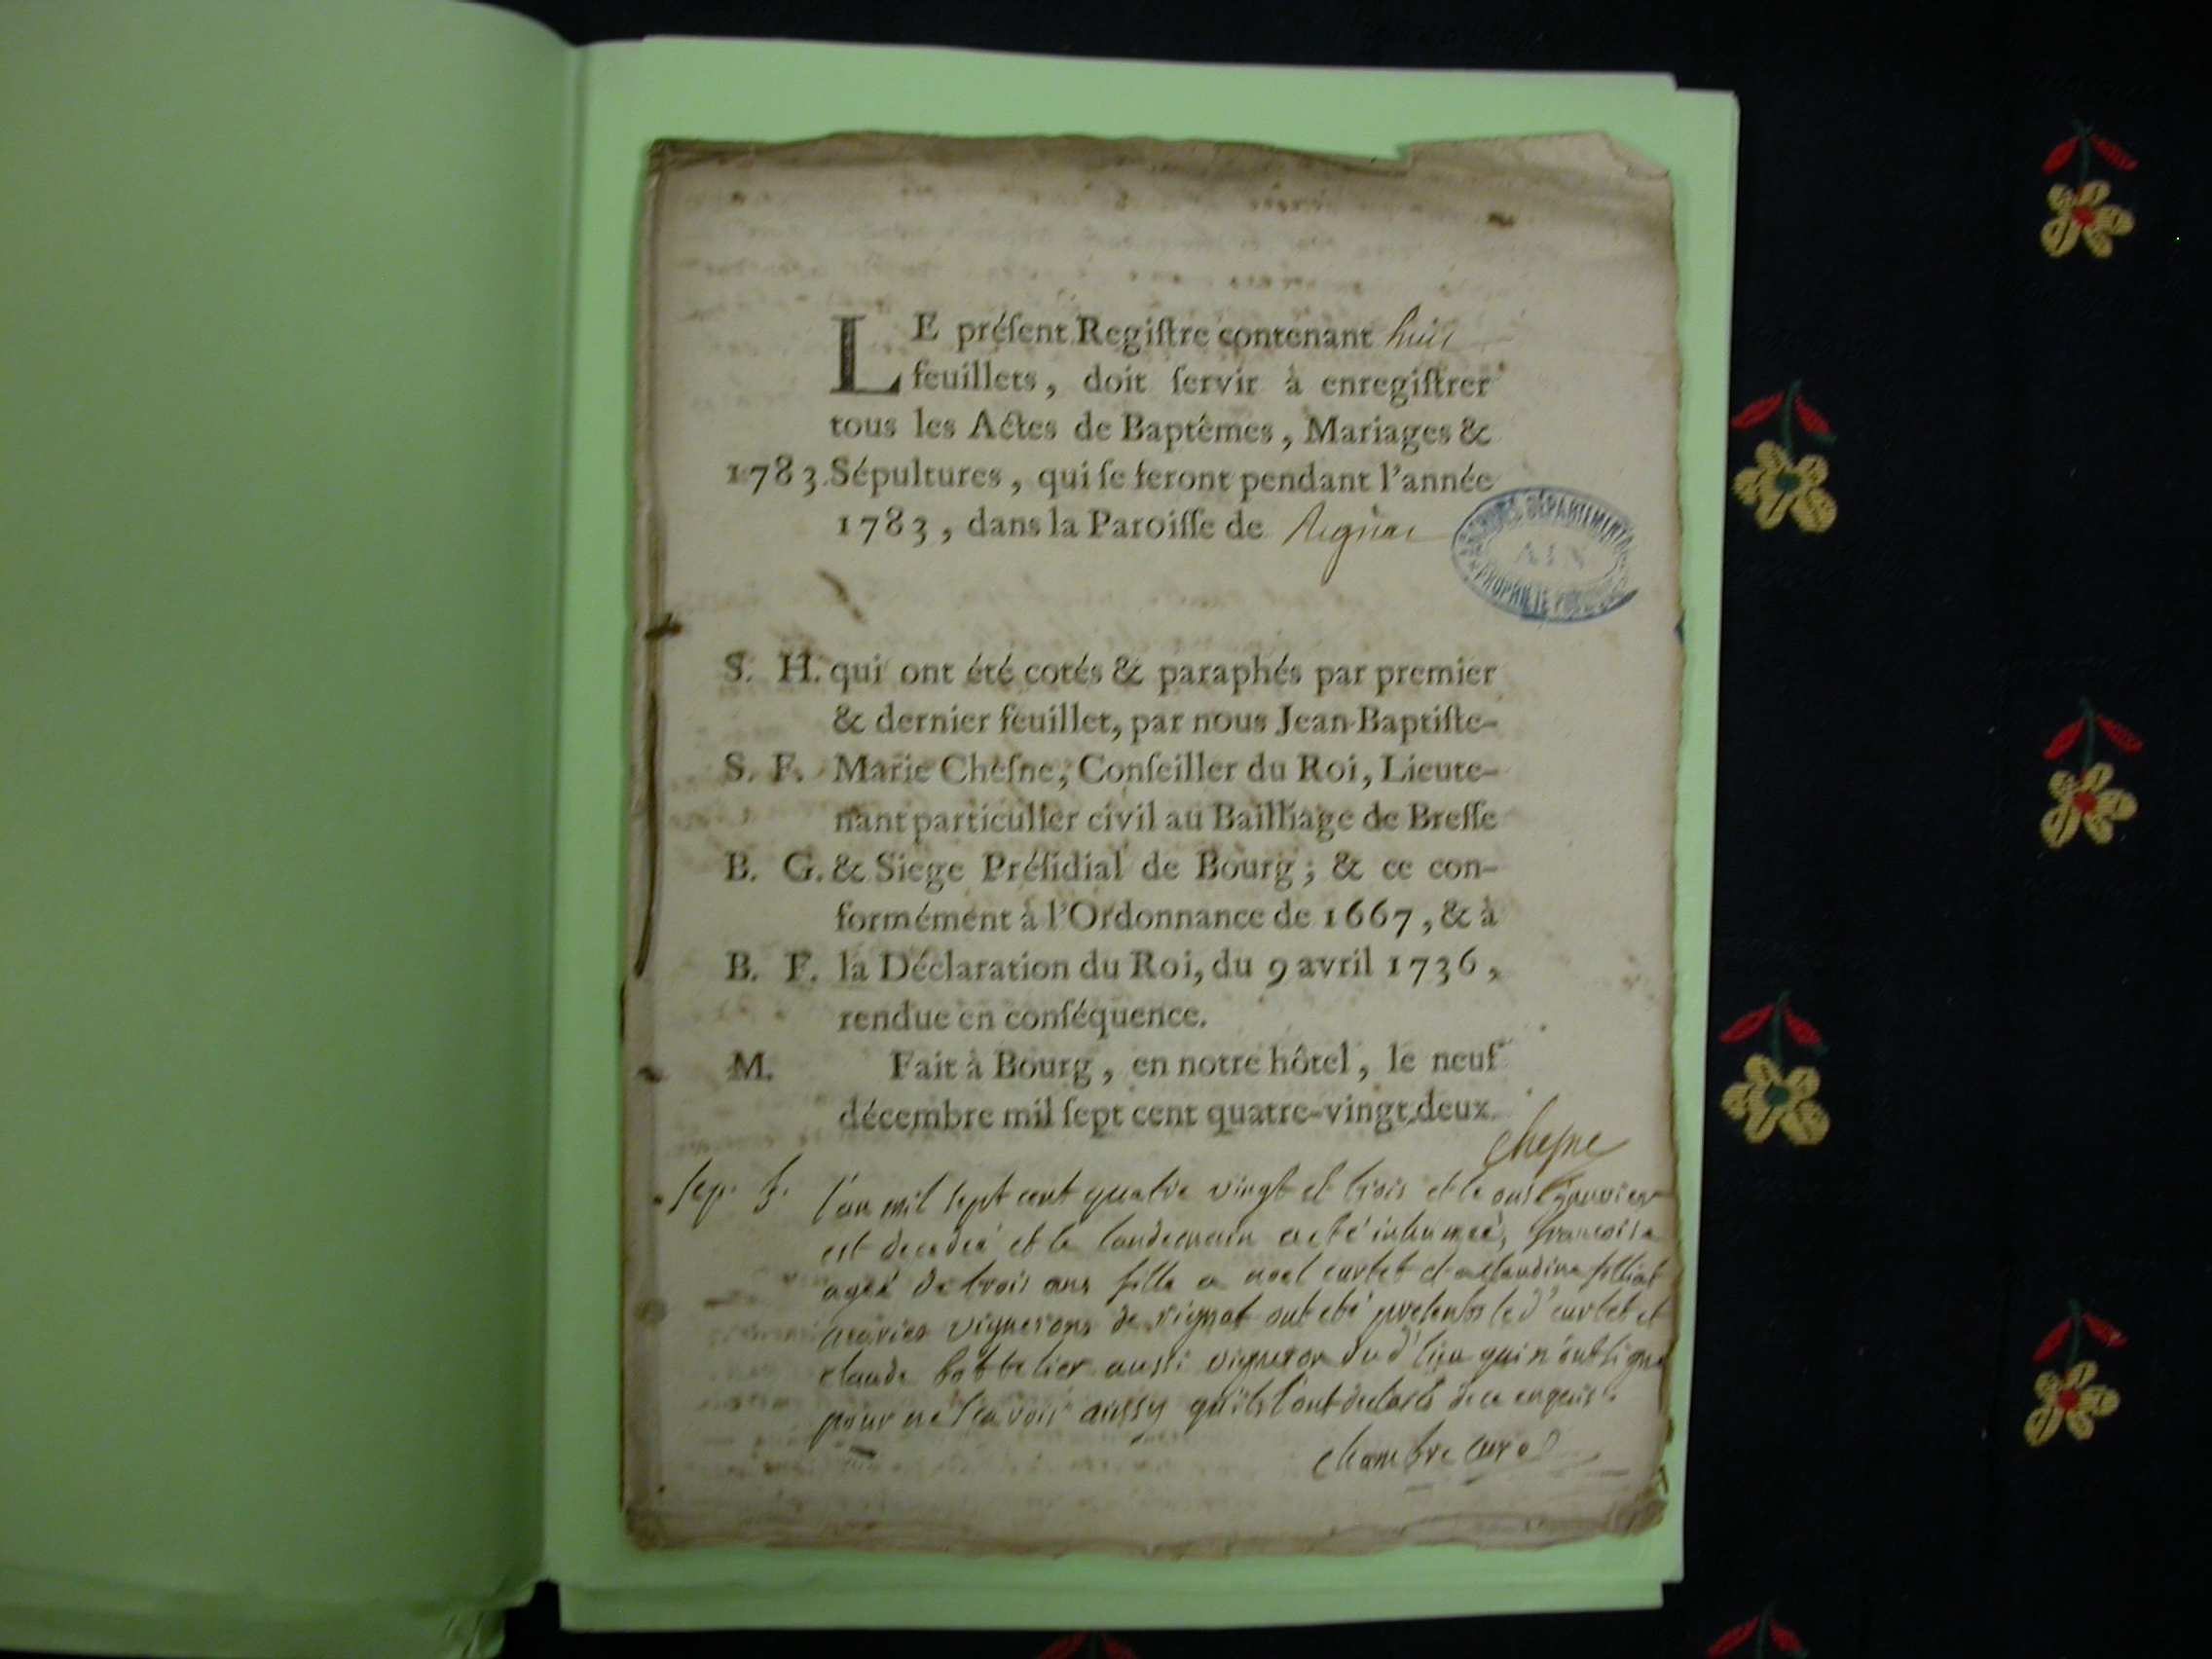 LE préſent Regiſtre contenant huit
feuillets, doit ſervir à enregiſtrer
tous les Actes de Baptêmes, Mariages &
1783. Sépultures, qui ſe feront pendant l'année
1783, dans la Paroiſſe de Rignat
ARCHIVES DÉPARTEMENTALES
AIN
PROPRIÉTÉ PUBLIQUE
S. H. qui ont été cotés & paraphés par premier
& dernier feuillet, par nous Jean-Baptiſte-
S. F. Marie Cheſne, Conſeiller du Roi, Lieute-
nant particulier civil au Bailliage de Breſſe
B. G. & Siege Préſidial de Bourg; & ce con-
formément à l'Ordonnance de 1667, & à
B. F. la Déclaration du Roi, du 9 avril 1736,
rendue en conſéquence.
M. Fait à Bourg, en notre hôtel, le neuf
décembre mil ſept cent quatre-vingt deux.
Chesne
Sep. f. l'an mil sept cent quatre vingt et trois et le onse janvier
est decedeé et le landemain a eté inhumeé, françoise
ageé de trois ans fille a noel curtet et a claudine
mariés vignerons de rignat ont eté presents le d' curtet et
claude bottelier aussi vigneron du d' lieu qui n'ont signé
pour ne scavoir aussy qu'ils l'ont declarés de ce enquis.
chambre curé